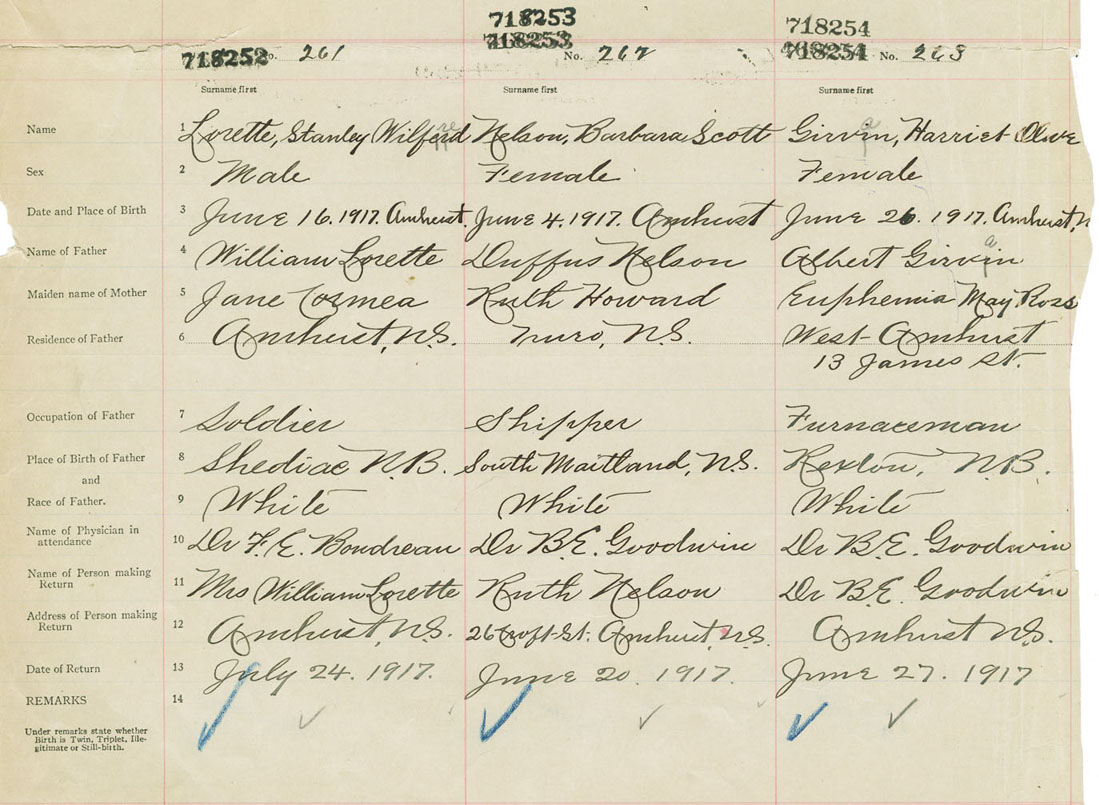 718253
718254
718252 No. 261 718253 No. 262 718254 No. 263
Surname first Surname first Surname first
Name 1 Lorette, Stanley Wilford Nelson, Barbara Scott Girvin, Harriet Olive
Sex 2 Male Female Female
Date and Place of Birth 3 June 16. 1917. Amherst. June 4. 1917. Amherst June 26. 1917. Amherst, N
Name of Father 4 William Lorette Duffus Nelson Albert Girvin
Maiden name of Mother 5 Jane Cormea Ruth Howard Euphemia May Ross
Residence of Father 6 Amherst, N.S. Truro, N.S. West-Amherst
13 James St.
Occupation of Father 7 Soldier Shipper Furnaceman
Place of Birth of Father 8 Shediac N.B. South Maitland, N.S. Rexton, N.B.
and
Race of Father. 9 White White White
Name of Physician in
attendance 10 Dr F. E. Boudreau Dr B.E. Goodwin Dr B.E. Goodwin
Name of Person making
Return 11 Mrs William Lorette Ruth Nelson Dr B.E. Goodwin
Address of Person making
Return 12 Amherst, N.S. 26 Croft-St. Amherst, N.S. Amherst N.S.
Date of Return 13 July 24. 1917. June 20. 1917. June 27. 1917
REMARKS 14
Under remarks state whether
Birth is Twin, Triplet, Ille-
gitimate or Still-birth.